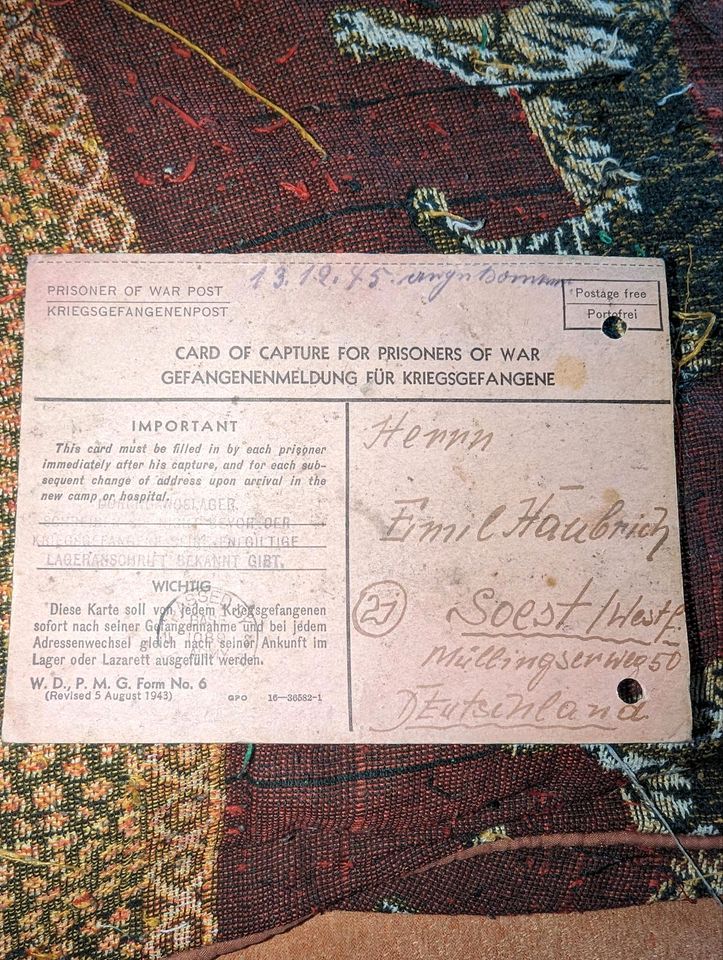 PRISONER OF WAR POST
KRIEGSGEFANGENENPOST
13.12.45.
Postage free
Portofrei
CARD OF CAPTURE FOR PRISONERS OF WAR
GEFANGENENMELDUNG FÜR KRIEGSGEFANGENE
IMPORTANT
This card must be filled in by each prisoner
immediately after his capture, and for each sub-
sequent change of address upon arrival in the
new camp or hospital.
LAGERANSCHRIFT BEKANNT GIBT.
WICHTIG
Diese Karte soll von jedem Kriegsgefangenen
sofort nach seiner Gefangennahme und bei jedem
Adressenwechsel gleich nach seiner Ankunft im
Lager oder Lazarett ausgefüllt werden.
W. D., P. M. G. Form No. 6
(Revised 5 August 1943)
GPO 16—36582-1
Herrn
Emil Häubrich
(21) Soest/Westf.
Müllingserweg 50
Deutschland